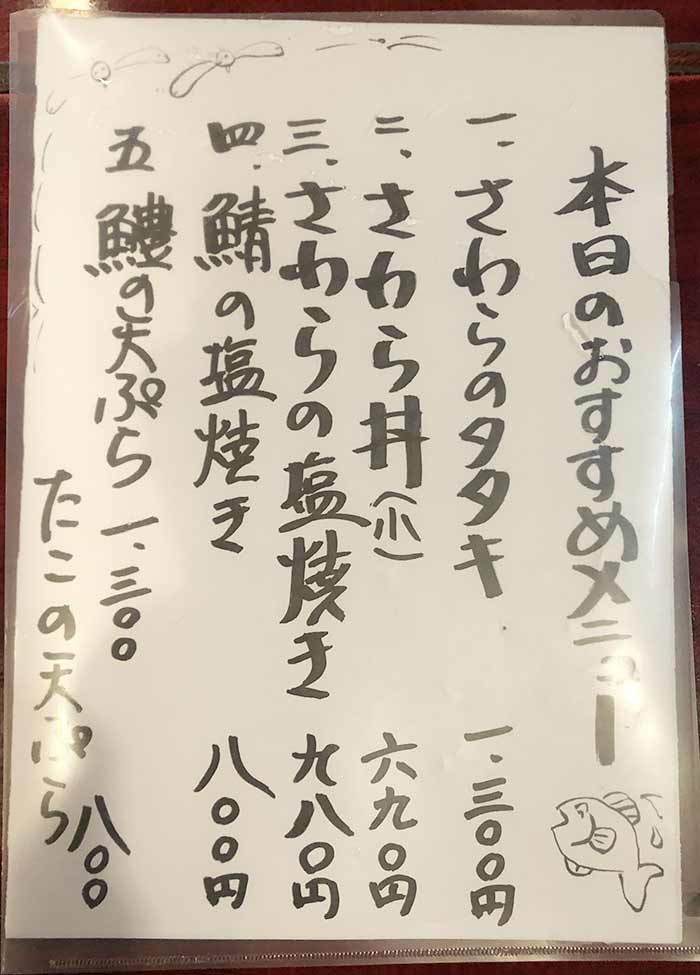 本日のおすすめメニュー
一、さわらのタタキ 一、三〇〇円
二、さわら丼(小) 六九〇円
三、さわらの塩焼き 九八〇円
四、鯖の塩焼き 八〇〇円
五 鱧の天ぷら 一、三〇〇
たこの天ぷら 八〇〇